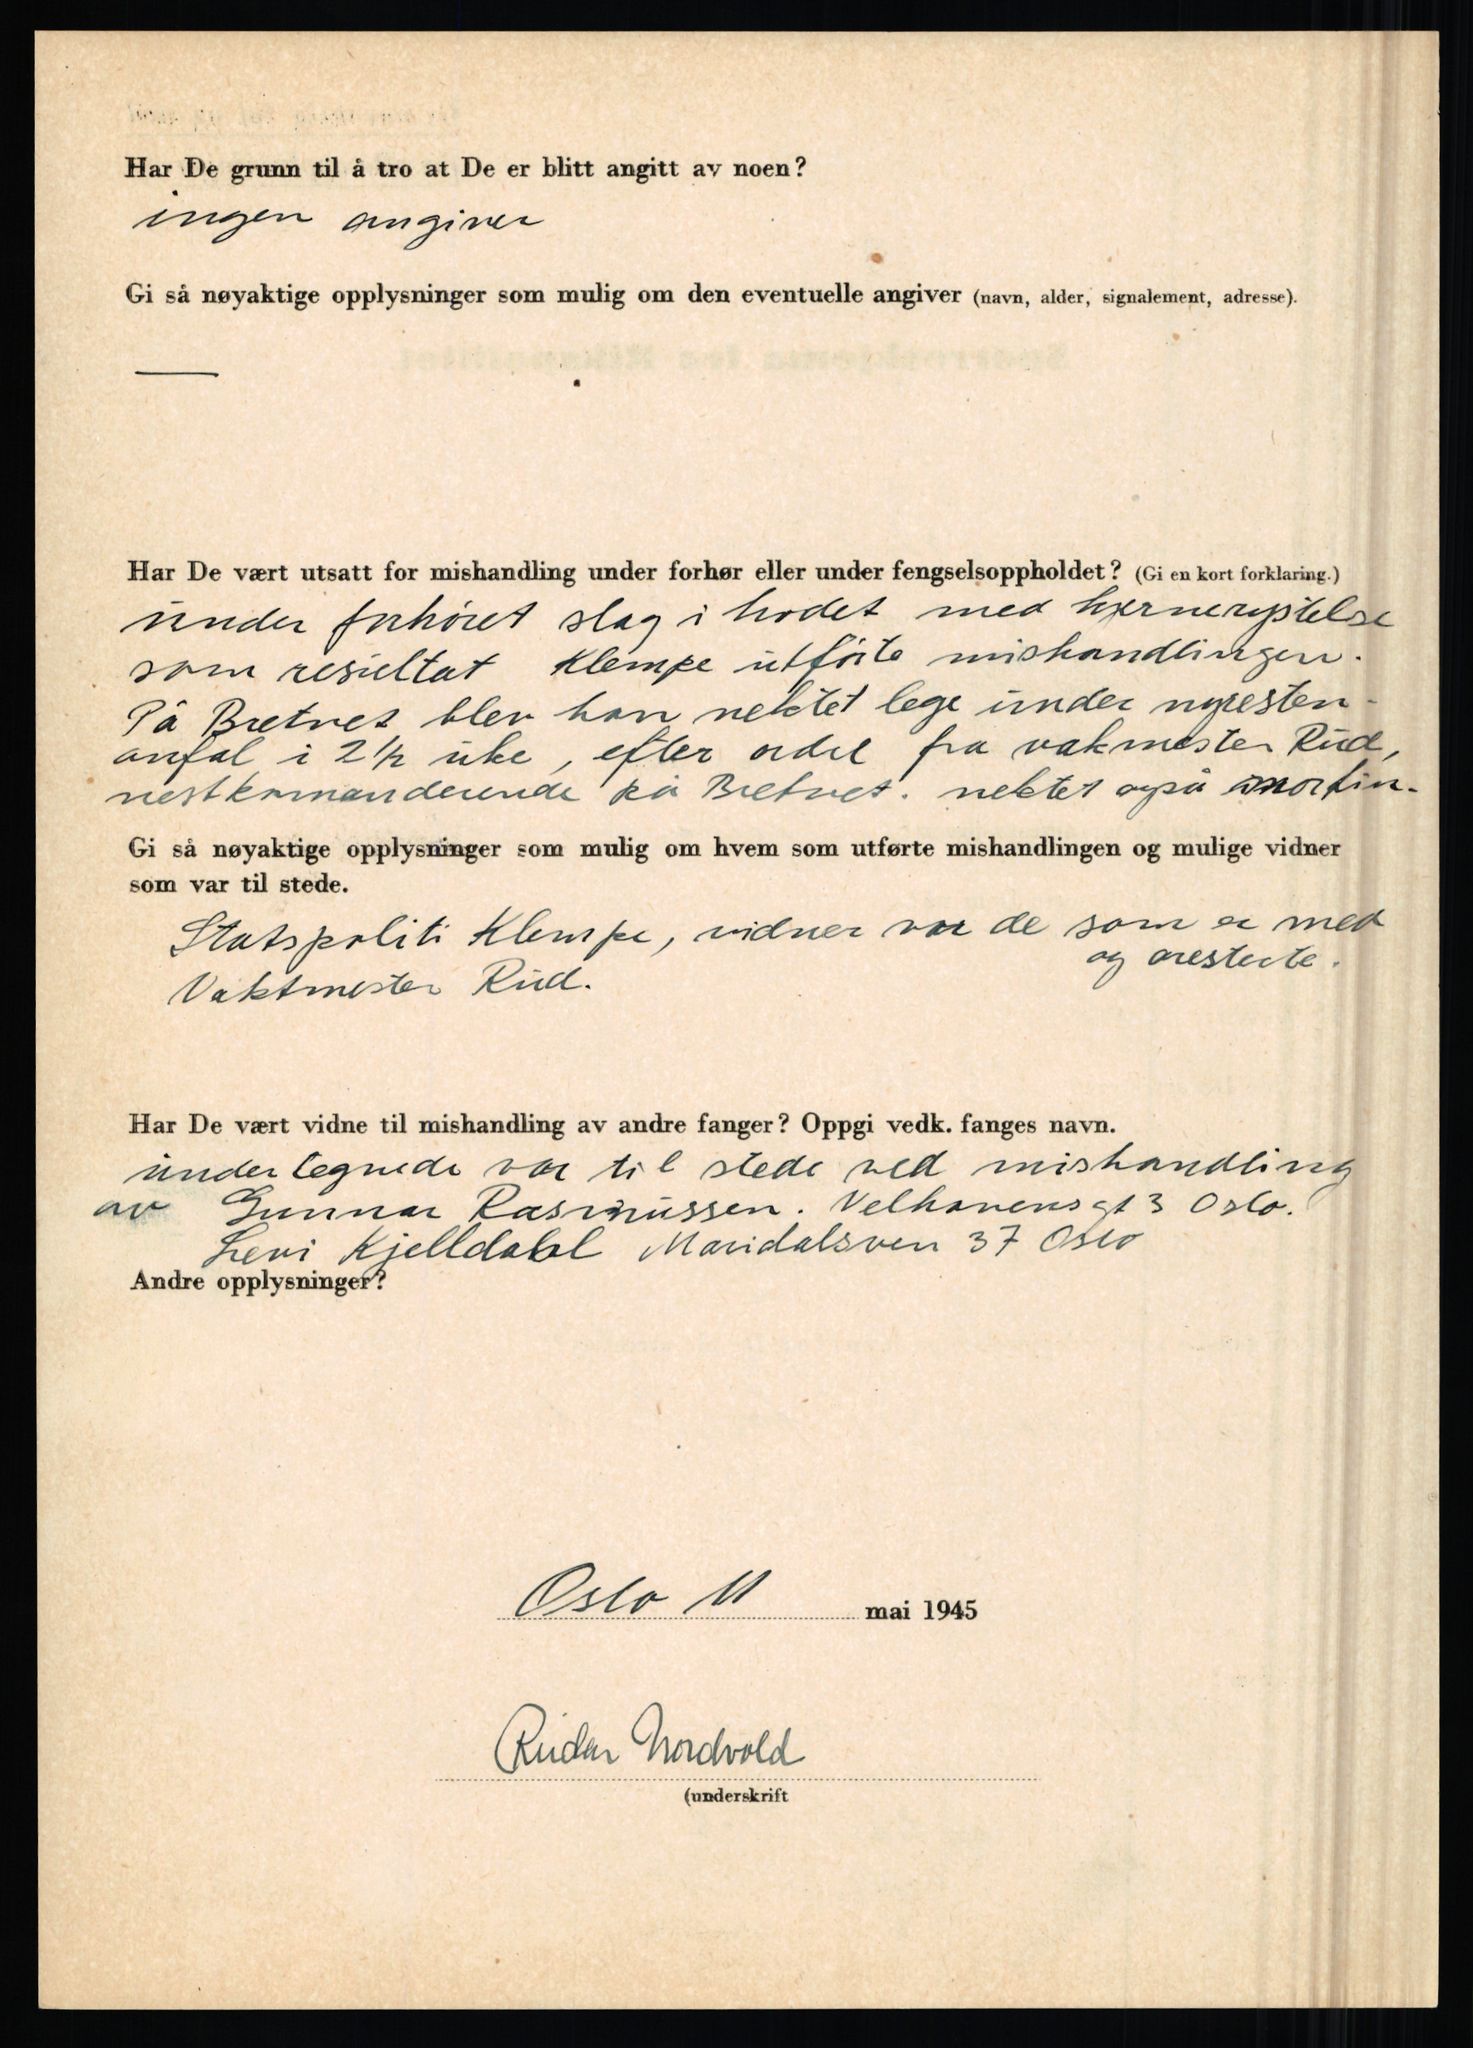 Har De grunn til å tro at De er blitt angitt av noen?
ingen angiver
Gi så nøyaktige opplysninger som mulig om den eventuelle angiver (navn, alder, signalement, adresse).
Har De vært utsatt for mishandling under forhør eller under fengselsoppholdet? (Gi en kort forklaring.)
under forhöret slag i hodet med hjernerystelse
som resultat Klempe utförte mishandlingen.
På Bretvet blev han nektet lege under nyresten-
anfal i 2½ uke, efter ordre fra vakmester Rud,
nestkomanderende på Bretvet. nektet også morfin.
Gi så nøyaktige opplysninger som mulig om hvem som utførte mishandlingen og mulige vidner
som var til stede.
Statspoliti Klempe, vidner var de som er med
og aresterte.
Vaktmester Rud.
Har De vært vidne til mishandling av andre fanger? Oppgi vedk. fanges navn.
undertegnede var til stede ved mishandling
av Gunnar Rasmussen. Velhavensgt 3 Oslo.
Levi Kjelldahl Maridalsven 37 Oslo
Andre opplysninger?
Oslo 11 mai 1945
Reidar Nordvold
(underskrift